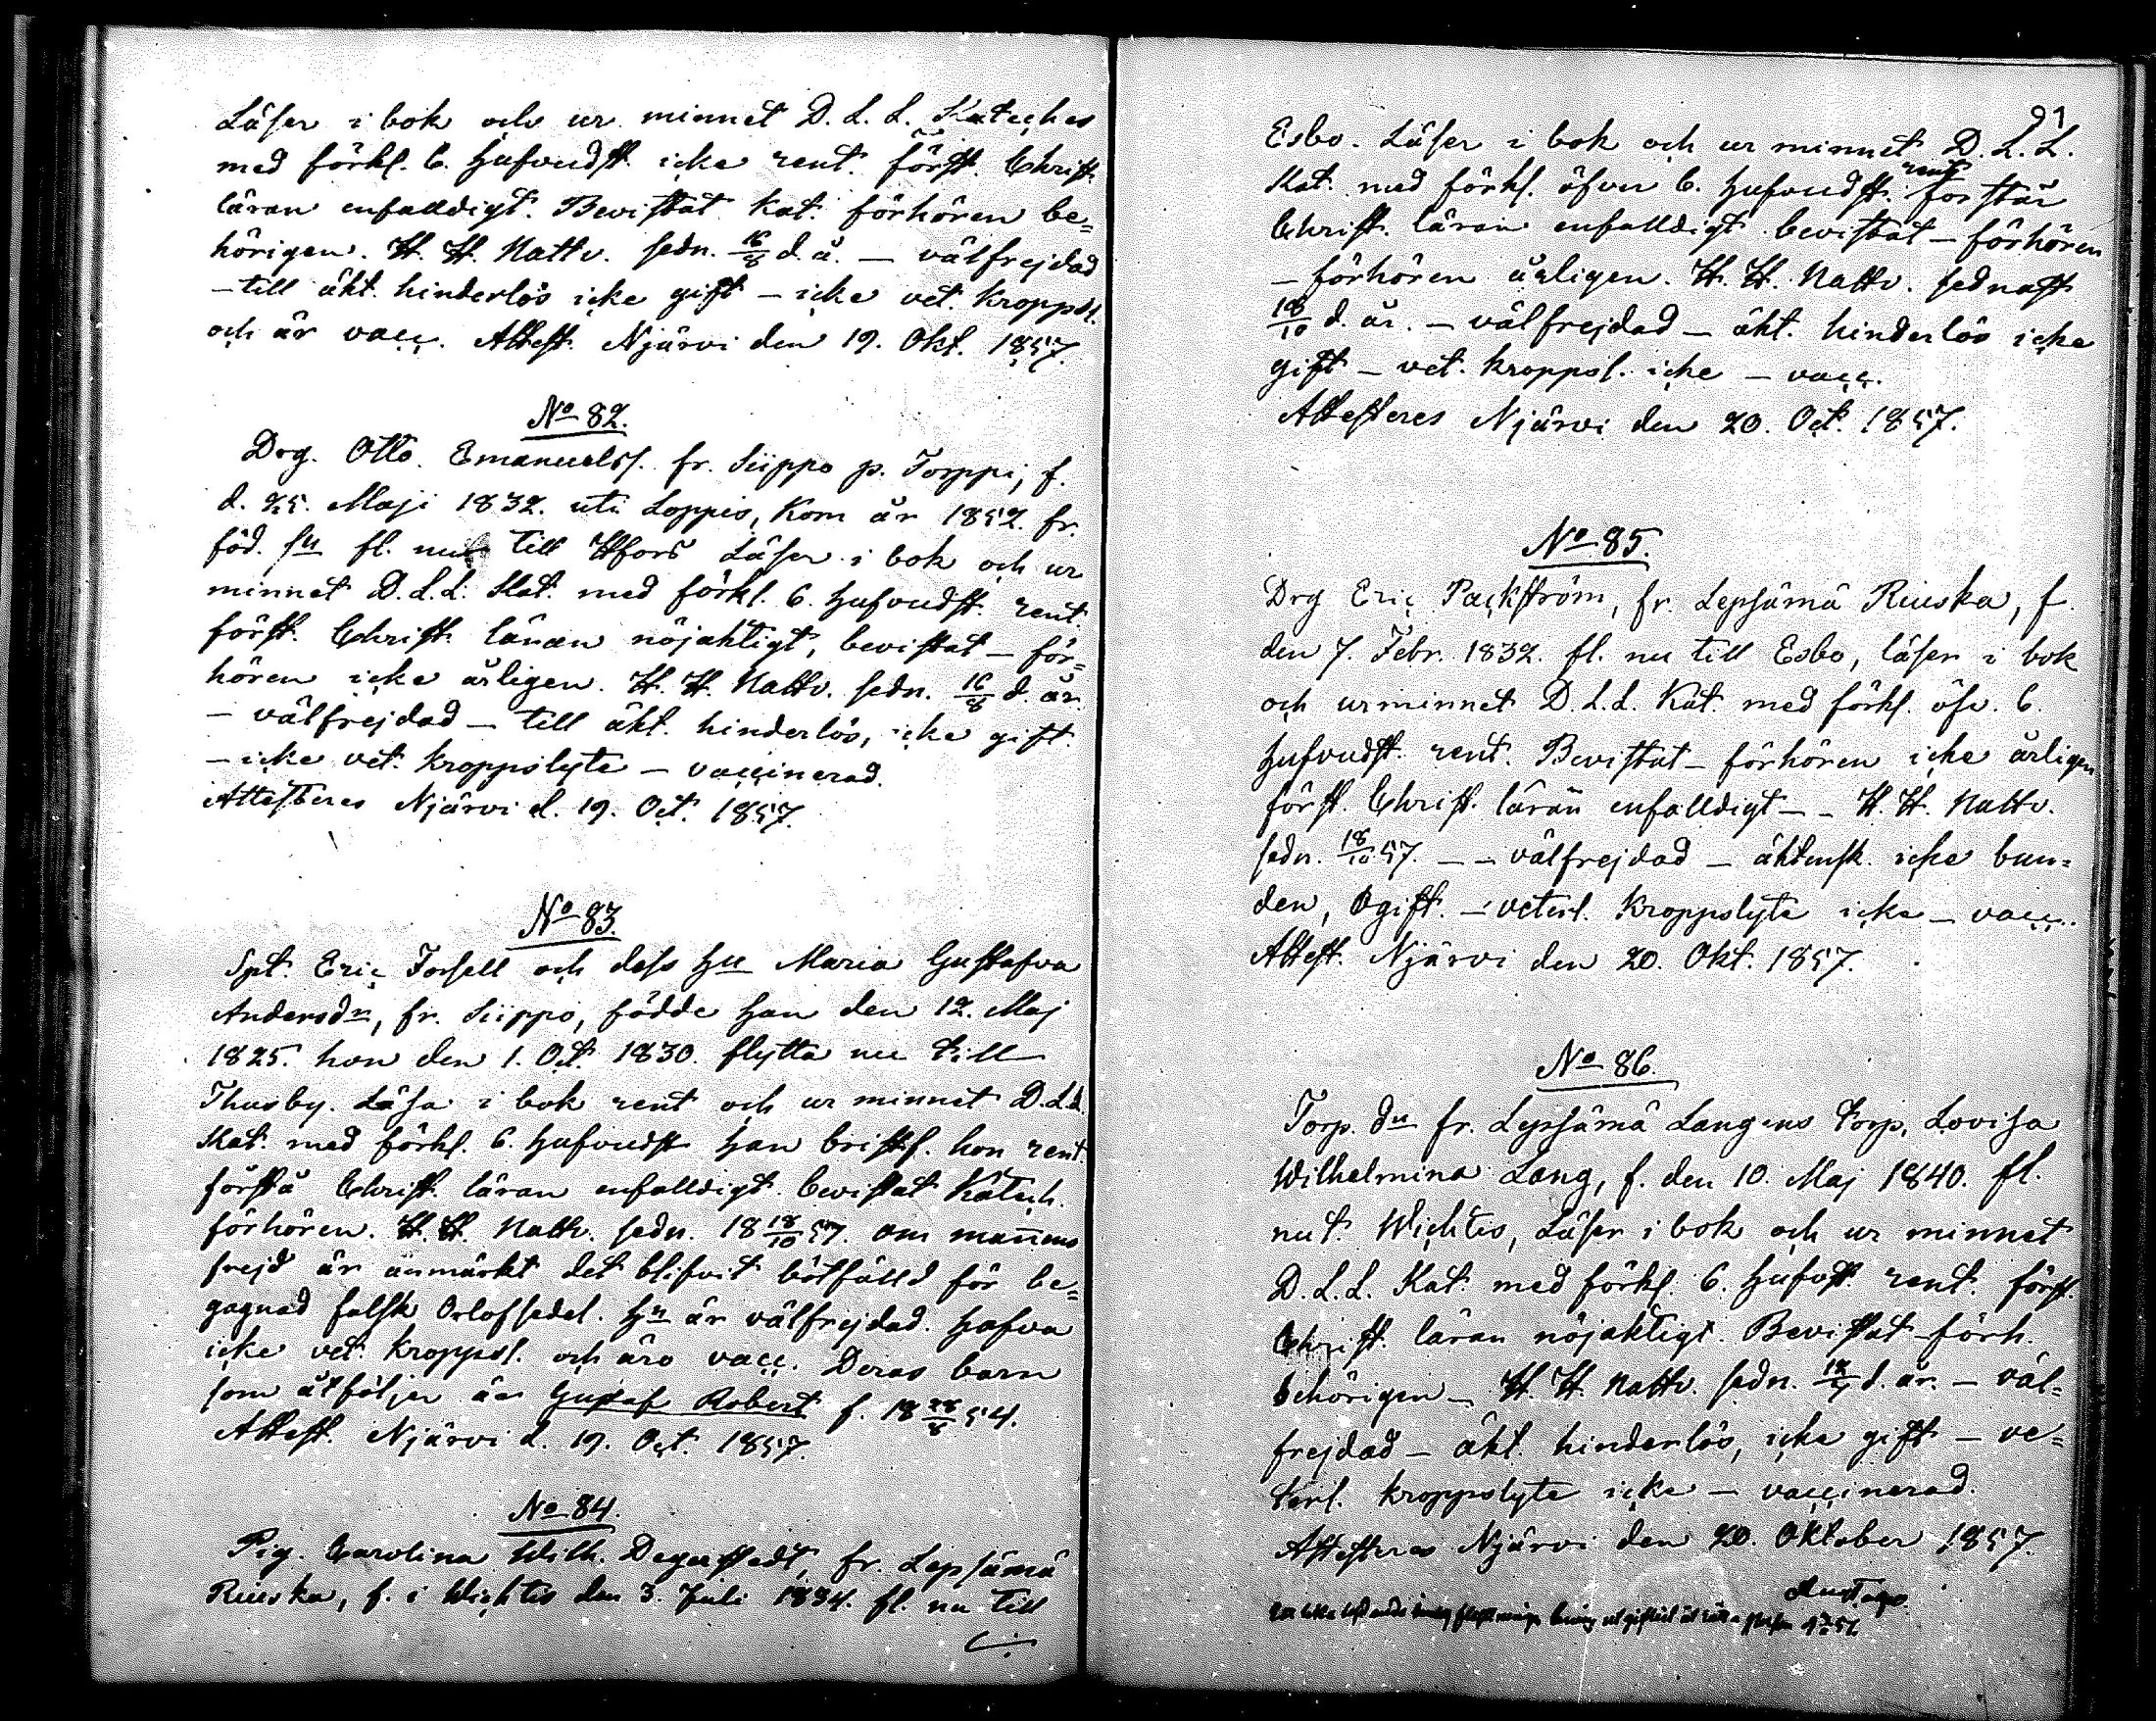 Läser i bok och ur minnet D. L. L. Kateches
med förkl. 6. Hufvudst. icke rent. först. Christ.
läran enfalldigt. Bevistat Kat. förhören be=
hörigen. H. H. Nattv. sedn. 16/8 d. å. — välfrejdad
— till äkt. hinderlös icke gift — icke vet. Kroppsl.
och är vacc. Attest. Njärvi den 19. Okt. 1857.
No 82.
Drg. Otto Emanuelss. fr. Siippo p. Torppi, f.
d. 25. Maji 1832. uti Loppis, Kom år 1852. fr.
föd. sn fl. nu till Hfors Läser i bok och ur
minnet D. L. L. Kat. med förkl. 6. Hufvudst. rent.
först. Christ. läran nöjaktigt, bevistat — för=
hören icke årligen. H. H. Nattv. sedn. 16/8 d. år.
— välfrejdad — till äkt. hinderlös, icke gift.
— icke vet. Kroppslyte — vaccinerad.
Attesteres Njärvi d. 19. Oct. 1857.
No 83.
Spt. Eric Forsell och dess Hu Maria Gustafva
Andersdr, fr. Siippo, födde Han den 12. Maj
1825. hon den 1. Oct. 1830. flytta nu till
Thusby. Läsa i bok rent och ur minnet D. L. L.
Kat. med förkl. 6. Hufvudst Han bristf. hon rent.
förstå Christ. läran enfalldigt. bevistat Katech.
förhören. H. H. Nattv. sedn. 18 18/10 57. om mannens
frejd är anmärkt det blifvit bötfälld för be=
gagnad falsk Orlofssedel. Hu är välfrejdad. Hafva
icke vet. Kroppsl. och äro vacc. Deras barn
som åtföljer är Gustaf Robert f. 18 28/8 54.
Attest. Njärvi d. 19. Oct. 1857.
No 84.
Pig. Carolina Wilh. Degerstedt, fr. Lepsämä
Riuska, f. i Wichtis den 3. Juli 1834. fl. nu till
91
Esbo. Läser i bok och ur minnet D. L. L.
rent
Kat. med förkl. öfver 6. Hufvudst. förstår
Christ. läran enfalldigt bevistat — förhören
— förhören årligen. H. H. Nattv. sednast
18/10 d. år. — välfrejdad — äkt. hinderlös icke
gift — vet. kroppsl. icke — vacc.
Attesteres Njärvi den 20. Oct. 1857.
No 85.
Drg Eric Packström, fr. Lepsämä Riuska, f.
den 7. Febr. 1832. fl. nu till Esbo, läser i bok
och ur minnet D. L. L. Kat. med förkl. öfv. 6.
Hufvudst. rent. Bevistat — förhören icke årligen
först. Christ. läran enfalldigt — — H. H. Nattv.
sedn. 18/10 57. — — välfrejdad — äktensk. icke bun=
den, Ogift. — veterl. Kroppslyte icke — vacc.
Attest. Njärvi den 20. Okt. 1857.
No 86.
Torp. dr fr. Lepsämä Langens torp, Lovisa
Wilhelmina Lang, f. den 10. Maj 1840. fl.
nu t. Wichtis, Läser i bok och ur minnet
D. L. L. Kat. med förkl. 6. Hufvst. rent. först.
Christ. läran nöjaktigt. Bevistat förh.
behörigen — H. H. Nattv. sedn. d. år. — väl=
frejdad — äkt. hinderlös, icke gift — ve=
terl. kroppslyte icke — vaccinerad.
Attesteres Njärvi den 20. Oktober 1857.